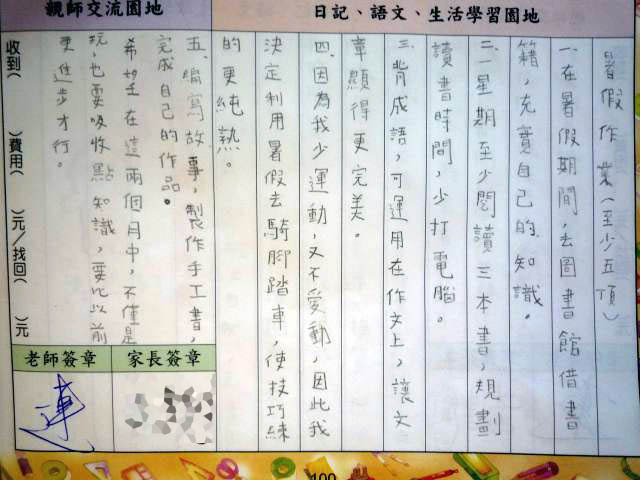 日記、語文、生活學習園地
暑假作業(至少五項)
一.在暑假期間,去圖書館借書
籍,充實自己的知識。
二.一星期至少閱讀三本書,規劃
讀書時間,少打電腦。
三.背成語,可運用在作文上,讓文
章顯得更完美。
四.因為我少運動,又不愛動,因此我
決定利用暑假去騎腳踏車,使技巧練
的更純熟。
五.編寫故事,製作手工書,
完成自己的作品。
希望在這兩個月中,不僅是
玩,也要吸收點知識,要比以前
更進步才行。
親師交流園地
收到( )費用( )元/找回( )元
老師簽章
家長簽章
100